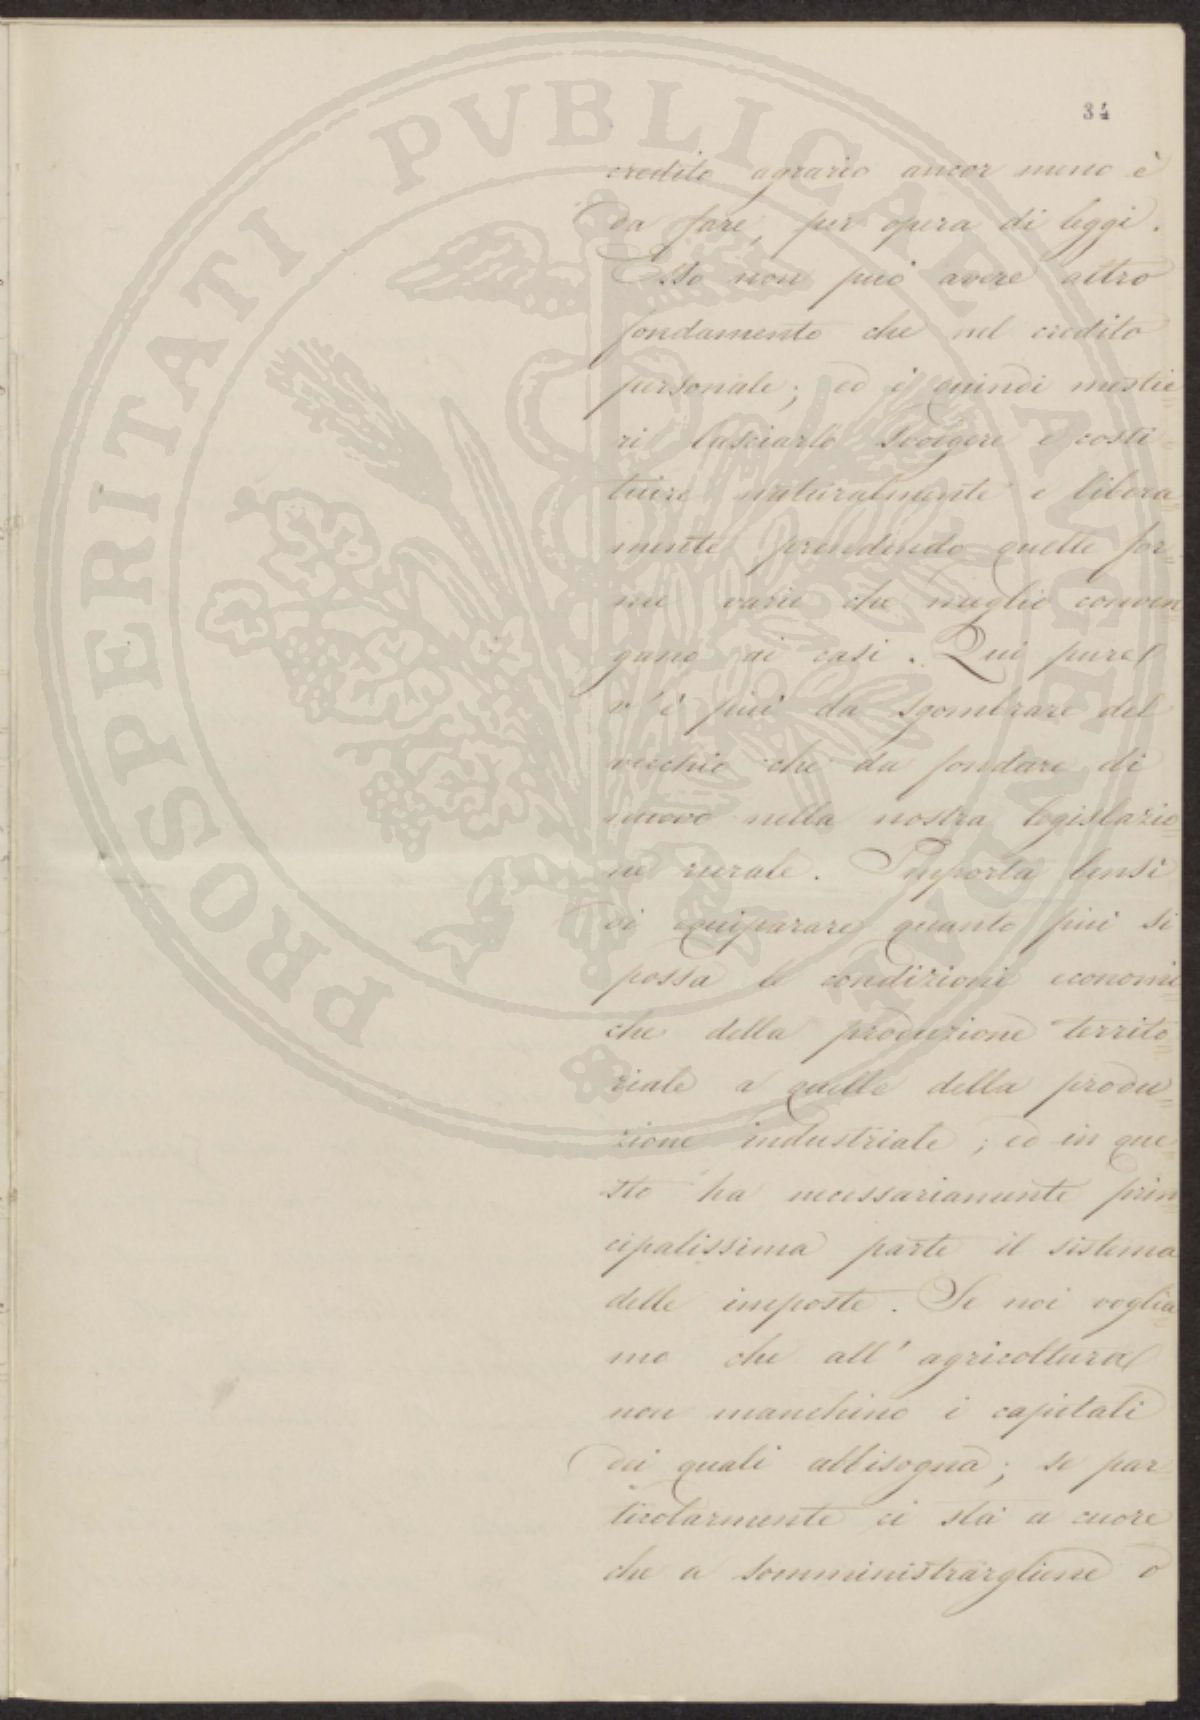 34
credito agrario ancor meno è
da fare, per opera di leggi.
Esso non può avere altro
fondamento che nel credito
personale; ed è quindi mestie=
ri lasciarlo svolgere e costi=
tuire naturalmente e libera=
mente prendendo quelle for=
me varie che meglio conven=
gano ai casi. Qui pure
v'è più da sgombrare del
vecchio che da fondare di
nuovo nella nostra legislazio=
ne rurale. Importa bensì
di equiparare quanto più si
possa le condizioni economi=
che della produzione territo=
riale a quelle della produ=
zione industriale; ed in que=
sto ha necessariamente prin=
cipalissima parte il sistema
delle imposte. Se noi voglia=
mo che all'agricoltura
non manchino i capitali
dei quali abbisogna; se par=
ticolarmente ci sta a cuore
che a somministrargliene o
PROSPERITATI PVBLICAE AVGENDAE